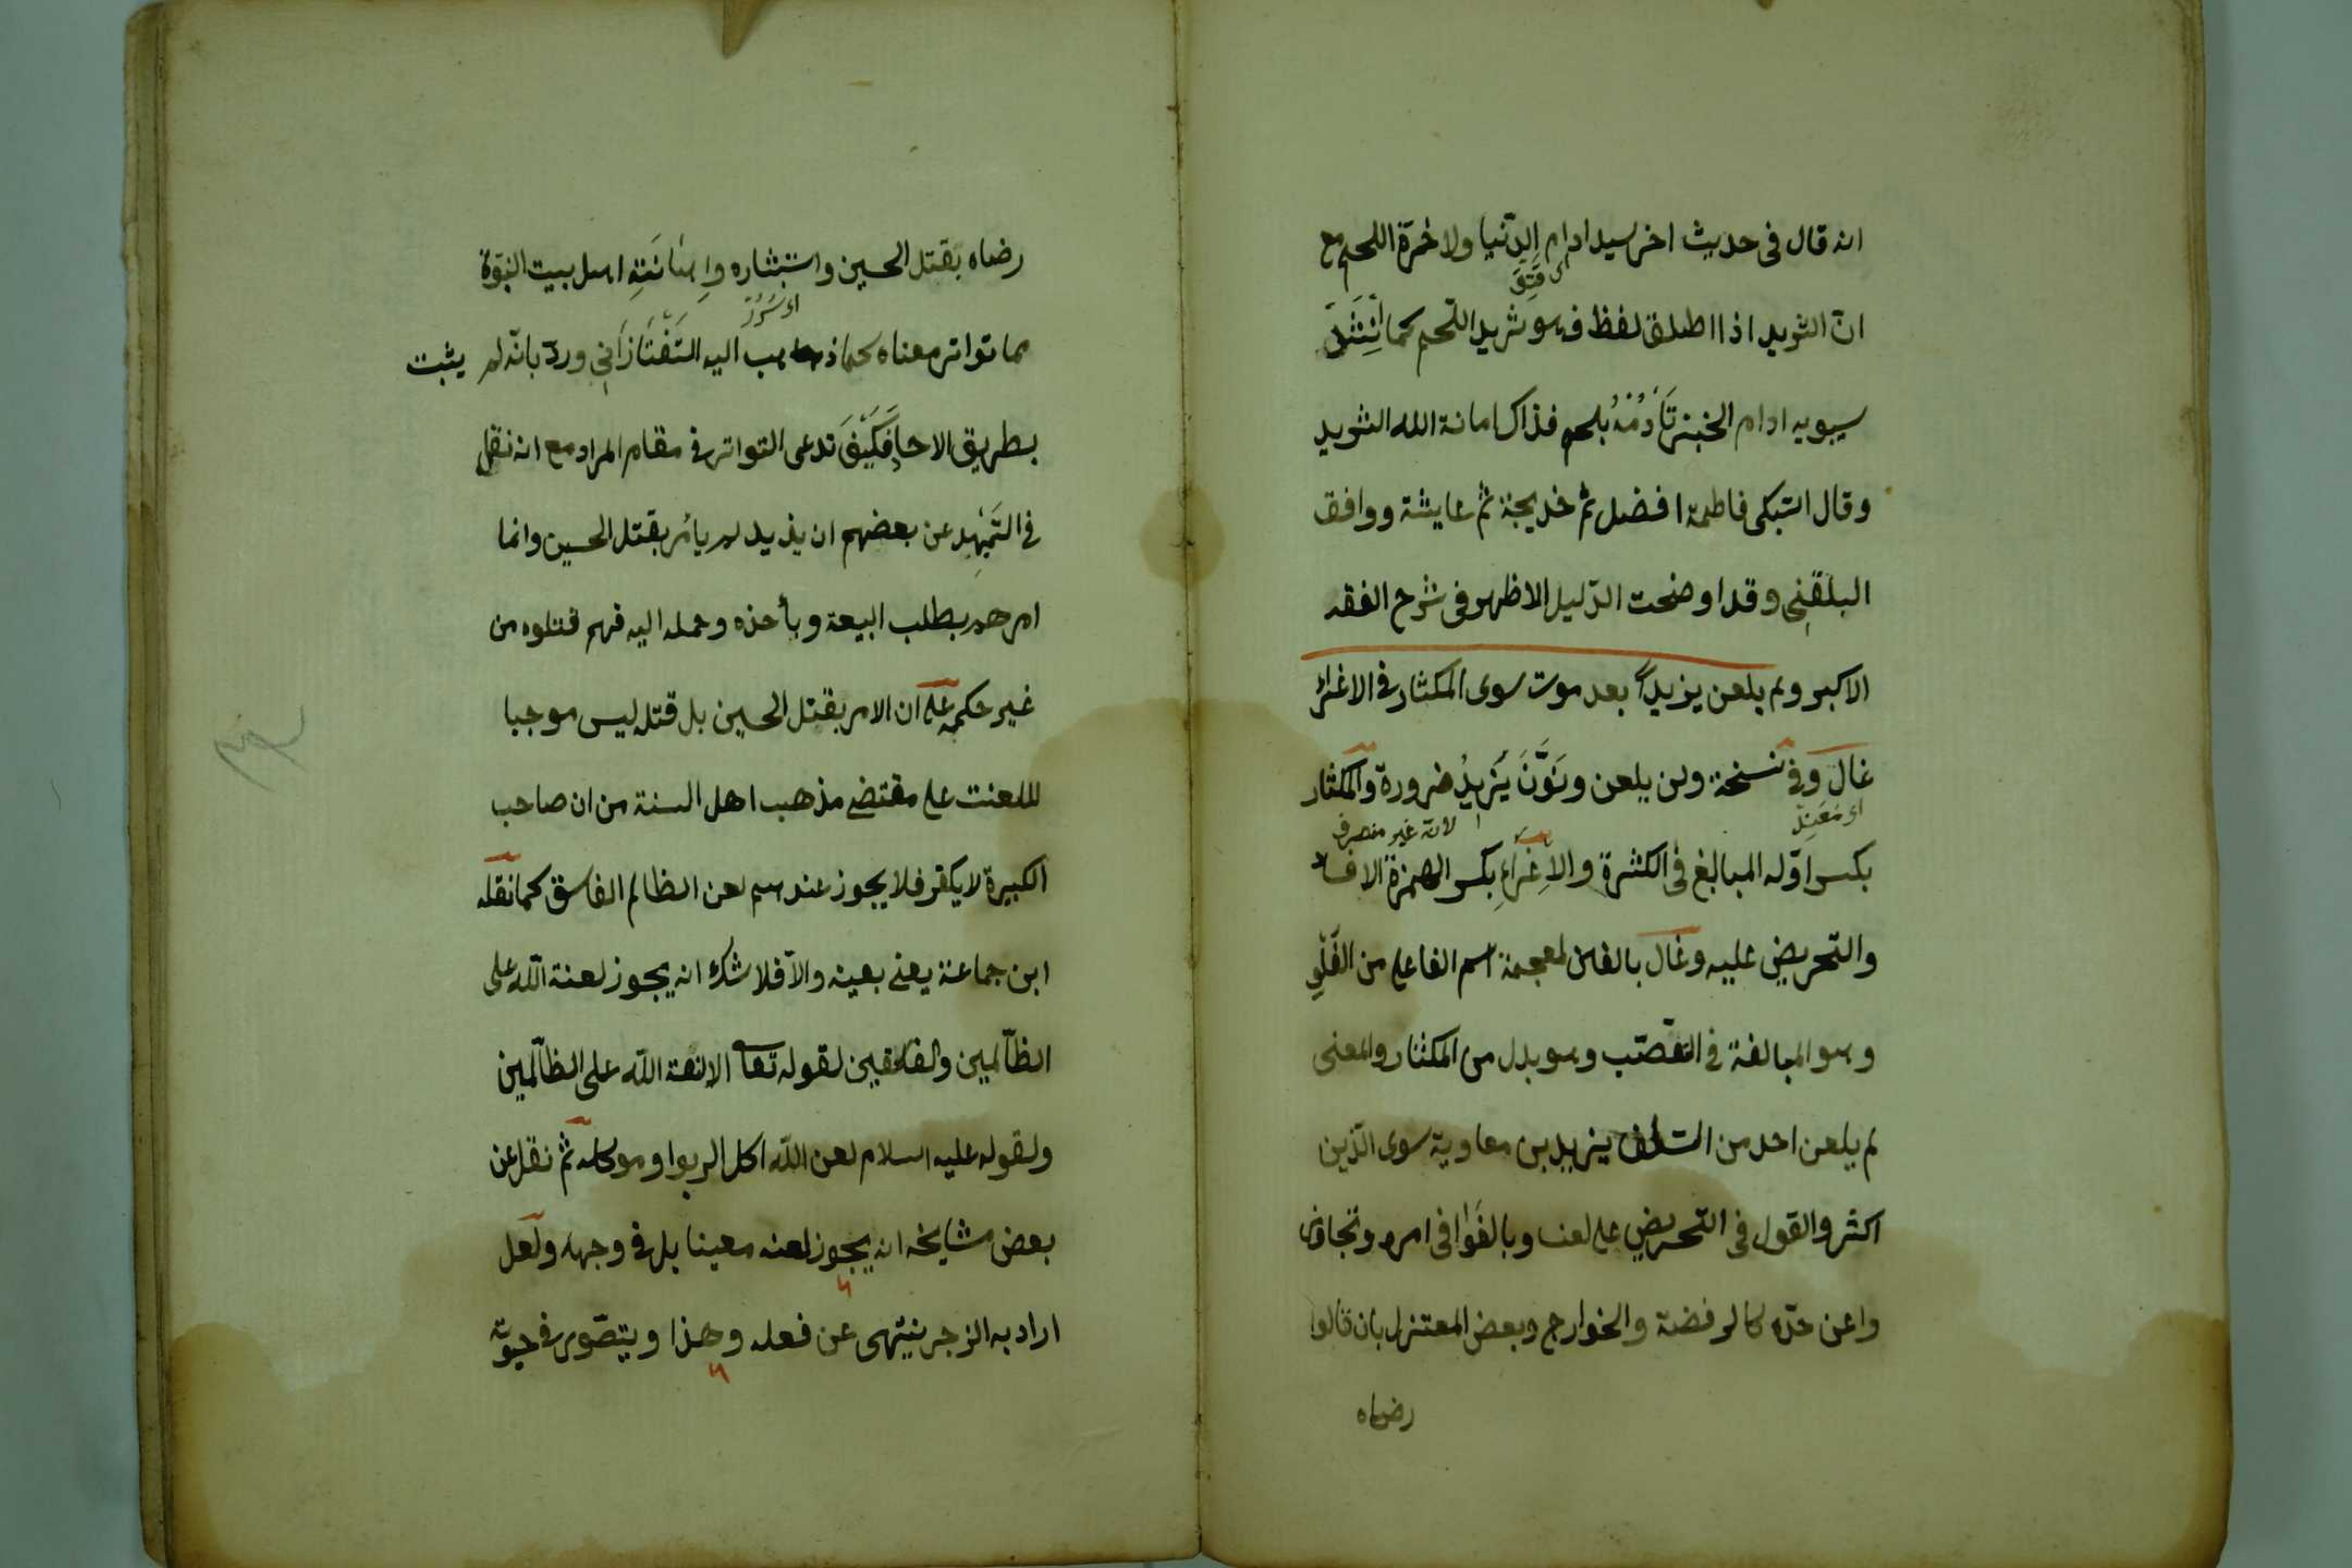 انه قال فى حديث اخر سيد ادام الدّنيا ولاخرة اللحم مع
انّ الثريد اذا اطلق لفظ فهو ثريد اللّحم كما
سيبويه ادام الخبز تَأدُمُهُ بلحم فذاك امانة الله الثريد
وقال السّبكى فاطمة افضل ثم خديجة ثم عايشة ووافق
البلقينى وقد اوضحت الدّليل الاظهر فى شرح الفقه
الاكبر ولم يلعن يزيداً بعد موت سوى المكثار فى الاغراء
غال وفى نسخة ولن يلعن ونوّن يَزِيدُ ضرورة والمكثار
لانه غير منصرف
بكسر اوّله المبالغ فى الكثرة والاِغراءِ بكسر الهمزة الافساد
والتحريض عليه وغال بالغين لمعجمة اسم الفاعل من الغلوّ
وهو المبالغة فى التعصّب وهو بدل من المكثار والمعنى
لم يلعن احد من السّلف يزيد بن معاوية سوى الذّين
اكثر والقول فى التحريض على لعنه وبالغوا فى امره وتجاوز
واعن حدّه كالرفضة والخوارج وبعض المعتزل بان قالوا
رضاه
رضاه بقتل الحسين واستبشاره واِهَانَتِهِ اهل بيت النبوّة
مما تواتر معناه كما ذهب اليه التَفْتَازَانِى وردّ بانّه لم يثبت
بطريق الاحاد فَكَيْفَ تدعى التواتر فى مقام المراد مع انه نقل
فى التمهيد عن بعضهم ان يذيد لم يأمر بقتل الحسين وانما
امرهم بطلب البيعة وبأخذه وحمله اليه فهم قتلوه من
غير حكمه على ان الامر بقتل الحسين بل قتله ليس موجبا
لللعنت على مقتضى مذهب اهل السنة من ان صاحب
الكبيرة لا يكفر فلا يجوز عندهم لعن الظالم الفاسق كما نقله
ابن جماعة يعنى بعينه والاّ فلا شك انه يجوز لعنة الله على
الظالمين والفاسقين لقوله تعا الا لعنة الله على الظالمين
ولقوله عليه السلام لعن الله اكل الربوا وموكله ثم نقل عن
بعض مشايخه انه يجوز لعنه معينا بل فى وجهه ولعل
اراد به الزجر ينتهى عن فعله وهذا ويتصوّر فى حيوته